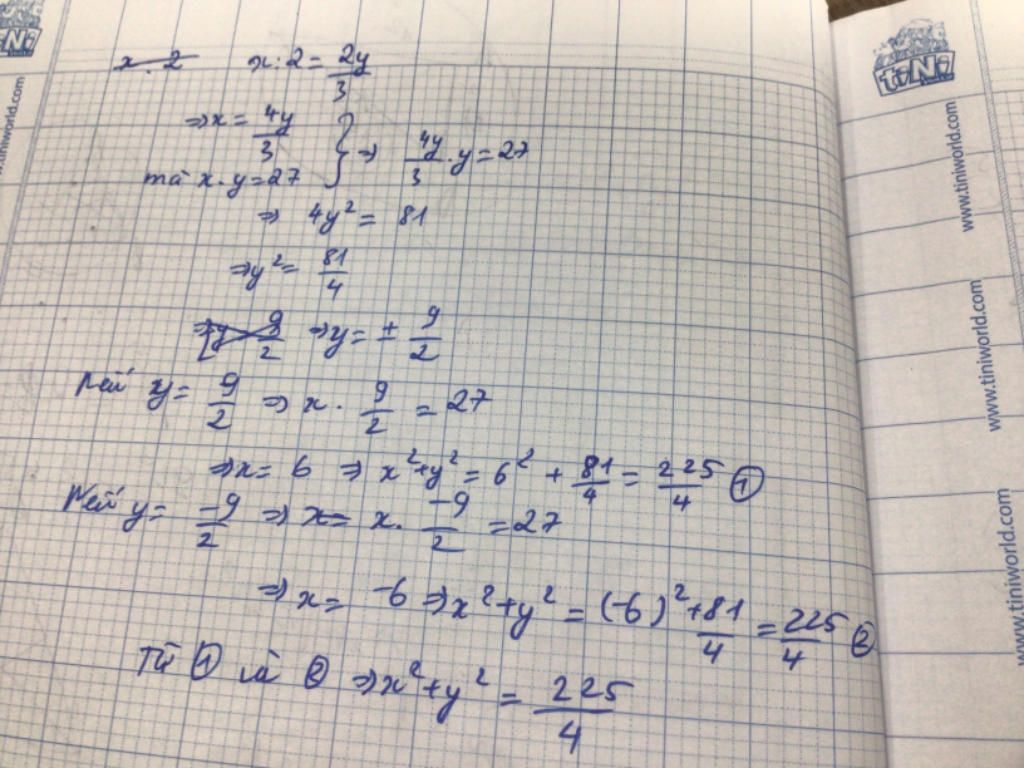 x : 2 = 2y/3
⇒ x = 4y/3
mà x . y = 27 } ⇒ 4y/3 . y = 27
⇒ 4y² = 81
⇒ y² = 81/4
⇒ y = ± 9/2
Nếu y = 9/2 ⇒ x . 9/2 = 27
⇒ x = 6 ⇒ x² + y² = 6² + 81/4 = 225/4 ①
Nếu y = -9/2 ⇒ x . -9/2 = 27
⇒ x = -6 ⇒ x² + y² = (-6)² + 81/4 = 225/4 ②
Từ ① và ② ⇒ x² + y² = 225/4
tiNi
www.tiniworld.com
www.tiniworld.com
www.tiniworld.com